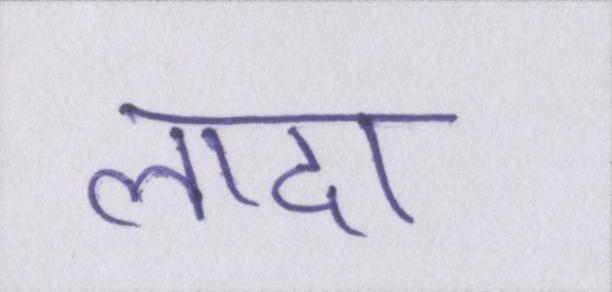 लादा